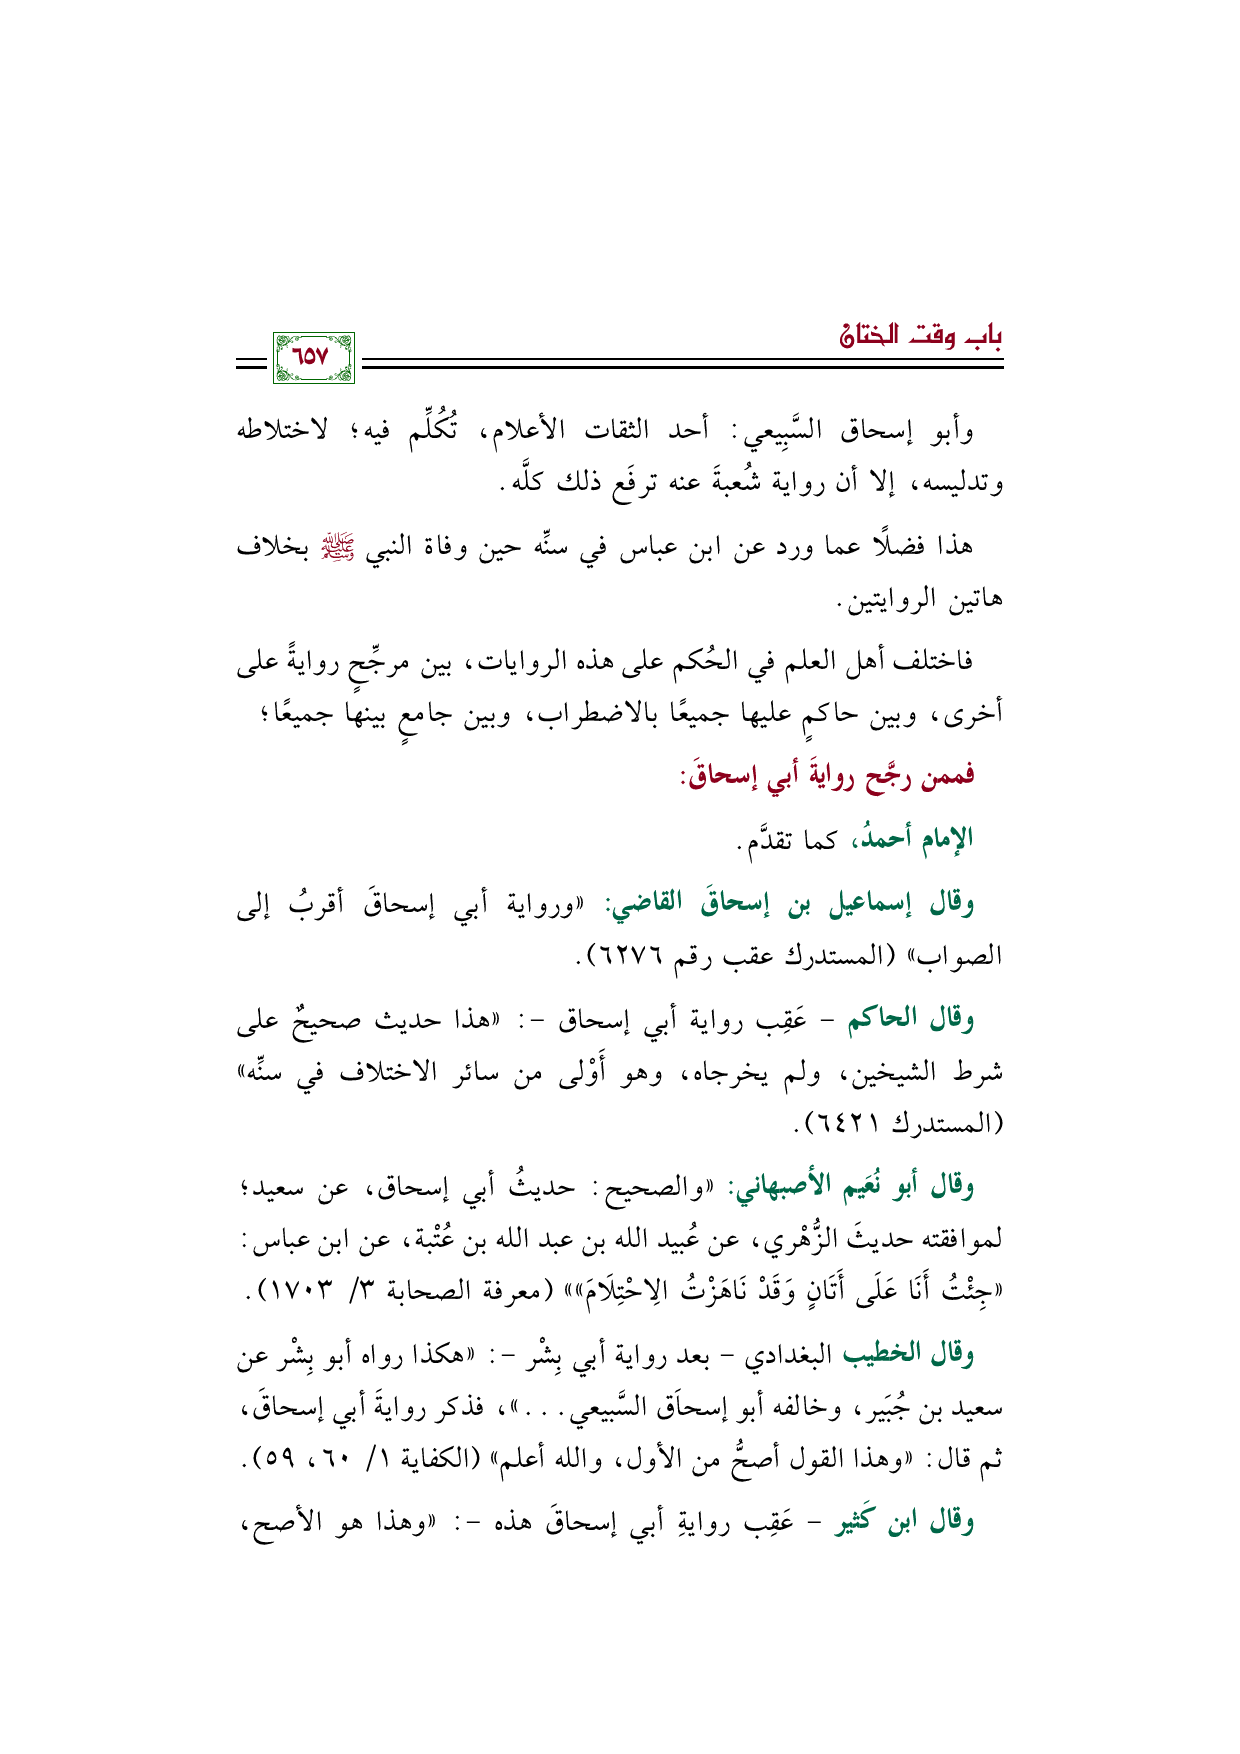 باب وقت الختان
٦٥٧
وأبو إسحاق السَّبِيعي: أحد الثقات الأعلام، تُكُلِّم فيه؛ لاختلاطه
وتدليسه، إلا أن رواية شُعبةَ عنه ترفَع ذلك كلَّه.
هذا فضلًا عما ورد عن ابن عباس في سنِّه حين وفاة النبي ﷺ بخلاف
هاتين الروايتين.
فاختلف أهل العلم في الحُكم على هذه الروايات، بين مرجِّحٍ روايةً على
أخرى، وبين حاكمٍ عليها جميعًا بالاضطراب، وبين جامعٍ بينها جميعًا؛
فممن رجَّح روايةَ أبي إسحاقَ:
الإمام أحمدُ، كما تقدَّم.
وقال إسماعيل بن إسحاقَ القاضي: «ورواية أبي إسحاقَ أقربُ إلى
الصواب» (المستدرك عقب رقم ٦٢٧٦).
وقال الحاكم – عَقِب رواية أبي إسحاق –: «هذا حديث صحيحٌ على
شرط الشيخين، ولم يخرجاه، وهو أَوْلى من سائر الاختلاف في سنِّه»
(المستدرك ٦٤٢١).
وقال أبو نُعَيم الأصبهاني: «والصحيح: حديثُ أبي إسحاق، عن سعيد؛
لموافقته حديثَ الزُّهْري، عن عُبيد الله بن عبد الله بن عُتْبة، عن ابن عباس:
«جِئْتُ أَنَا عَلَى أَتَانٍ وَقَدْ نَاهَزْتُ الِاحْتِلَامَ»» (معرفة الصحابة ٣/ ١٧٠٣).
وقال الخطيب البغدادي – بعد رواية أبي بِشْر –: «هكذا رواه أبو بِشْر عن
سعيد بن جُبَير، وخالفه أبو إسحاَق السَّبيعي...»، فذكر روايةَ أبي إسحاقَ،
ثم قال: «وهذا القول أصحُّ من الأول، والله أعلم» (الكفاية ١/ ٦٠، ٥٩).
وقال ابن كَثير – عَقِب روايةِ أبي إسحاقَ هذه –: «وهذا هو الأصح،